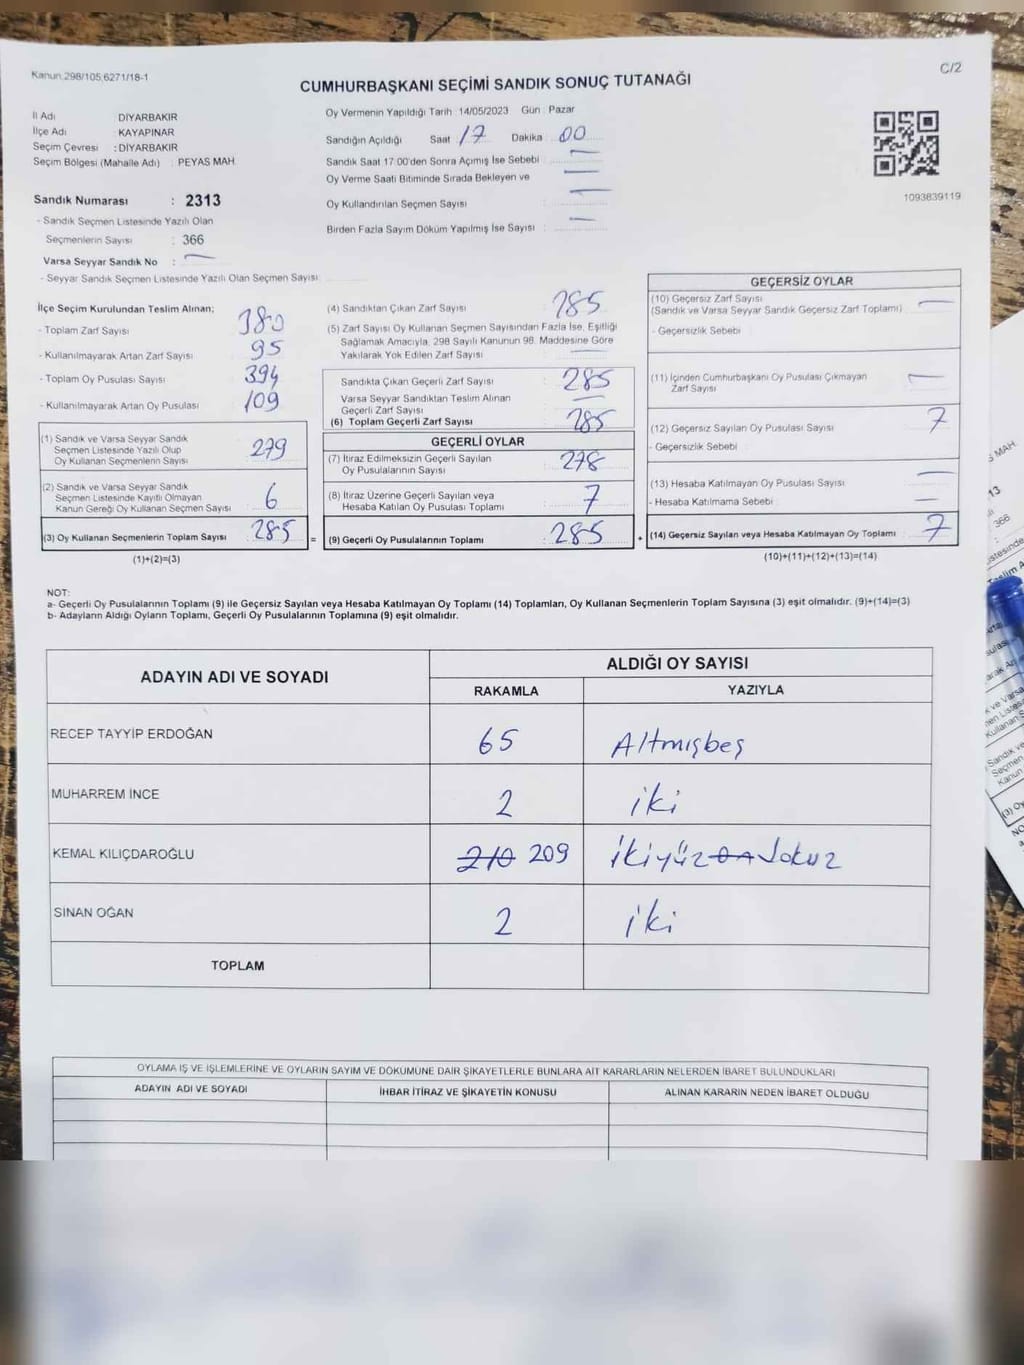 Kanun 298/105,6271/18-1
C/2
CUMHURBAŞKANI SEÇİMİ SANDIK SONUÇ TUTANAĞI
İl Adı DİYARBAKIR
İlçe Adı : KAYAPINAR
Seçim Çevresi : DİYARBAKIR
Seçim Bölgesi (Mahalle Adı) : PEYAS MAH.
Sandık Numarası : 2313
- Sandık Seçmen Listesinde Yazılı Olan
Seçmenlerin Sayısı : 366
Varsa Seyyar Sandık No : —
- Seyyar Sandık Seçmen Listesinde Yazılı Olan Seçmen Sayısı:
Oy Vermenin Yapıldığı Tarih 14/05/2023 Gün : Pazar
Sandığın Açıldığı Saat 17 Dakika 00
Sandık Saat 17:00'den Sonra Açımış İse Sebebi : —
Oy Verme Saati Bitiminde Sırada Bekleyen ve —
Oy Kullandırılan Seçmen Sayısı : —
Birden Fazla Sayım Döküm Yapılmış İse Sayısı : —
1093839119
İlçe Seçim Kurulundan Teslim Alınan;
- Toplam Zarf Sayısı : 380
- Kullanılmayarak Artan Zarf Sayısı : 95
- Toplam Oy Pusulası Sayısı : 394
- Kullanılmayarak Artan Oy Pusulası : 109
(1) Sandık ve Varsa Seyyar Sandık
Seçmen Listesinde Yazılı Olup
Oy Kullanan Seçmenlerin Sayısı : 279
(2) Sandık ve Varsa Seyyar Sandık
Seçmen Listesinde Kayıtlı Olmayan
Kanun Gereği Oy Kullanan Seçmen Sayısı : 6
(3) Oy Kullanan Seçmenlerin Toplam Sayısı : 285
(1)+(2)=(3)
=
(4) Sandıktan Çıkan Zarf Sayısı : 285
(5) Zarf Sayısı Oy Kullanan Seçmen Sayısından Fazla İse, Eşitliği
Sağlamak Amacıyla, 298 Sayılı Kanunun 98. Maddesine Göre
Yakılarak Yok Edilen Zarf Sayısı : —
Sandıkta Çıkan Geçerli Zarf Sayısı : 285
Varsa Seyyar Sandıktan Teslim Alınan
Geçerli Zarf Sayısı : —
(6) Toplam Geçerli Zarf Sayısı : 285
GEÇERLİ OYLAR
(7) İtiraz Edilmeksizin Geçerli Sayılan
Oy Pusulalarının Sayısı : 278
(8) İtiraz Üzerine Geçerli Sayılan veya
Hesaba Katılan Oy Pusulası Toplamı : 7
(9) Geçerli Oy Pusulalarının Toplamı : 285
+
GEÇERSİZ OYLAR
(10) Geçersiz Zarf Sayısı
(Sandık ve Varsa Seyyar Sandık Geçersiz Zarf Toplamı) : —
- Geçersizlik Sebebi :
(11) İçinden Cumhurbaşkanı Oy Pusulası Çıkmayan
Zarf Sayısı : —
(12) Geçersiz Sayılan Oy Pusulası Sayısı : 7
- Geçersizlik Sebebi :
(13) Hesaba Katılmayan Oy Pusulası Sayısı : —
- Hesaba Katılmama Sebebi : —
(14) Geçersiz Sayılan veya Hesaba Katılmayan Oy Toplamı : 7
(10)+(11)+(12)+(13)=(14)
NOT:
a- Geçerli Oy Pusulalarının Toplamı (9) ile Geçersiz Sayılan veya Hesaba Katılmayan Oy Toplamı (14) Toplamları, Oy Kullanan Seçmenlerin Toplam Sayısına (3) eşit olmalıdır. (9)+(14)=(3)
b- Adayların Aldığı Oyların Toplamı, Geçerli Oy Pusulalarının Toplamına (9) eşit olmalıdır.
ADAYIN ADI VE SOYADI
ALDIĞI OY SAYISI
RAKAMLA YAZIYLA
RECEP TAYYİP ERDOĞAN 65 Altmışbeş
MUHARREM İNCE 2 iki
KEMAL KILIÇDAROĞLU 210 209 ikiyüz on dokuz
SİNAN OĞAN 2 iki
TOPLAM
OYLAMA İŞ VE İŞLEMLERİNE VE OYLARIN SAYIM VE DÖKÜMÜNE DAİR ŞİKAYETLERLE BUNLARA AİT KARARLARIN NELERDEN İBARET BULUNDUKLARI
ADAYIN ADI VE SOYADI İHBAR İTİRAZ VE ŞİKAYETİN KONUSU ALINAN KARARIN NEDEN İBARET OLDUĞU